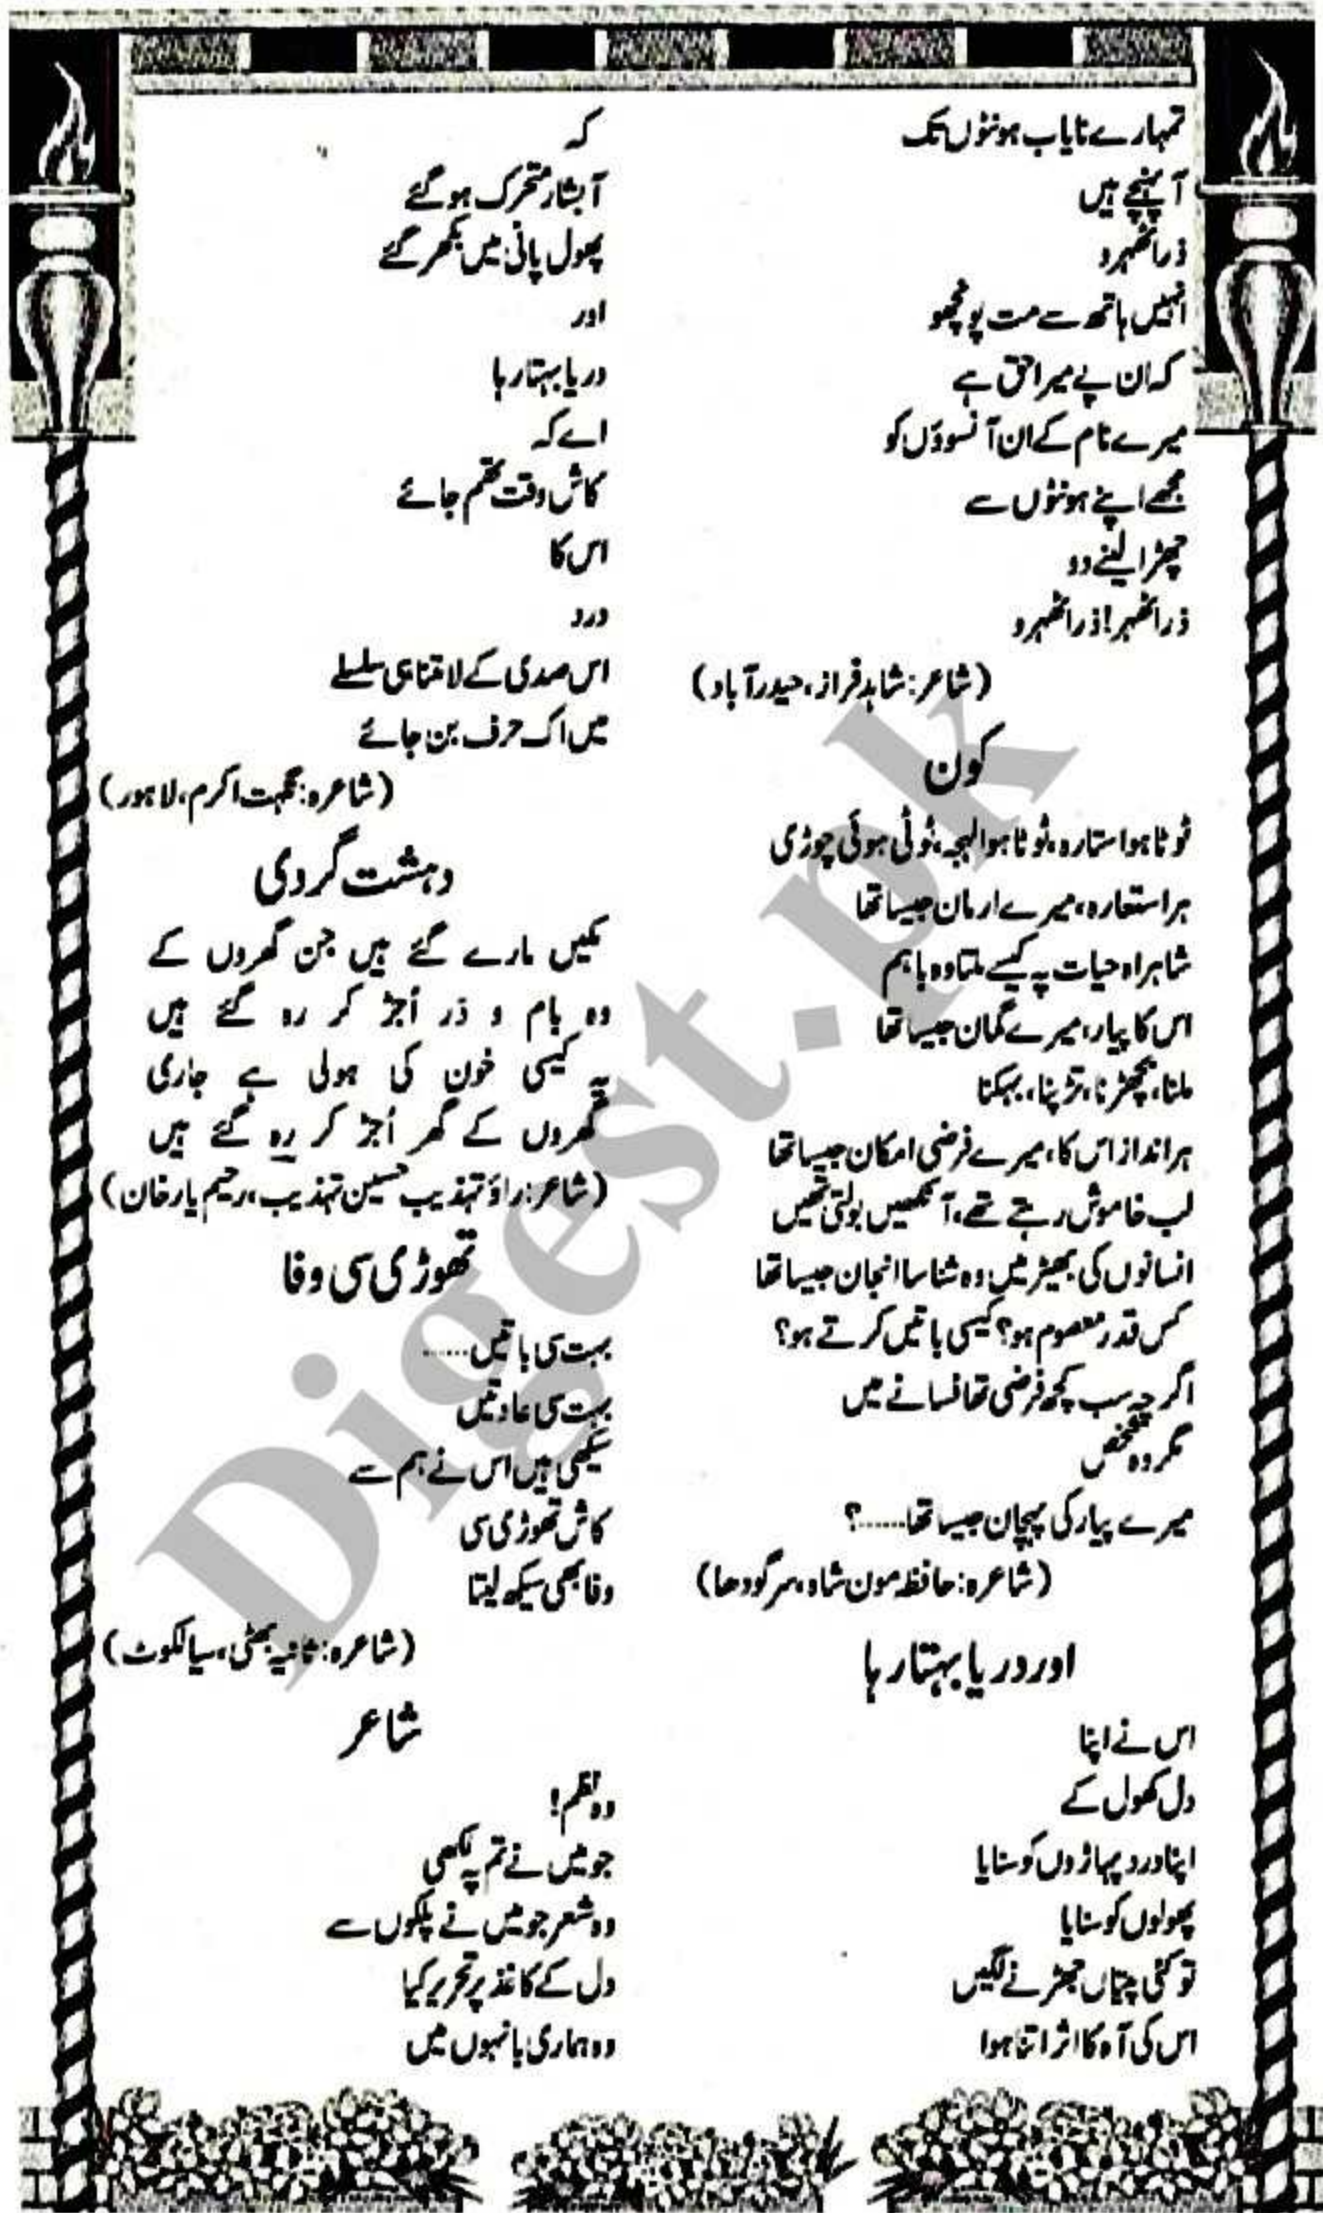 تمہارے نایاب ہونٹوں تک
آ پہنچے ہیں
ذرا ٹھہرو
انہیں ہاتھ سے مت پونچھو
کہ ان پے میرا حق ہے
میرے نام کے ان آنسوؤں کو
مجھے اپنے ہونٹوں سے
چھڑا لینے دو
ذرا ٹھہر! ذرا ٹھہرو
(شاعر: شاہد فراز، حیدرآباد)
کون
ٹوٹا ہوا ستارہ، ٹوٹا ہوا لہجہ، ٹوٹی ہوئی چوڑی
ہر استعارہ، میرے ارمان جیسا تھا
شاہراہ حیات پہ کیسے ملتا وہ باہم
اس کا پیار، میرے گمان جیسا تھا
ملنا، بچھڑنا، تڑپنا، بہکنا
ہر انداز اس کا، میرے فرضی امکان جیسا تھا
لب خاموش رہتے تھے، آنکھیں بولتی تھیں
انسانوں کی بھیڑ میں وہ شناسا انجان جیسا تھا
کس قدر معصوم ہو؟ کیسی باتیں کرتے ہو؟
اگرچہ سب کچھ فرضی تھا فسانے میں
مگر وہ شخص
میرے پیار کی پہچان جیسا تھا......؟
(شاعرہ: حافظہ مون شاہ، سرگودھا)
اور دریا بہتا رہا
اس نے اپنا
دل کھول کے
اپنا درد پہاڑوں کو سنایا
پھولوں کو سنایا
تو کئی پتیاں جھڑنے لگیں
اس کی آہ کا اثر اتنا ہوا
کہ
آبشار متحرک ہو گئے
پھول پانی میں بکھر گئے
اور
دریا بہتا رہا
اے کہ
کاش وقت تھم جائے
اس کا
درد
اس صدی کے لامتناہی سلسلے
میں اک حرف بن جائے
(شاعرہ: نگہت اکرم، لاہور)
دہشت گردی
مکیں مارے گئے ہیں جن گھروں کے
وہ بام و در اُجڑ کر رہ گئے ہیں
یہ کیسی خون کی ہولی ہے جاری
گھروں کے گھر اُجڑ کر رہ گئے ہیں
(شاعر: راؤ تہذیب حسین تہذیب، رحیم یار خان)
تھوڑی سی وفا
بہت سی باتیں......
بہت سی عادتیں
سیکھی ہیں اس نے ہم سے
کاش تھوڑی سی
وفا بھی سیکھ لیتا
(شاعرہ: ثانیہ بھٹی، سیالکوٹ)
شاعر
وہ نظم!
جو میں نے تم پہ لکھی
وہ شعر جو میں نے پلکوں سے
دل کے کاغذ پر تحریر کیا
وہ ہماری بانہوں میں
Digest.pk